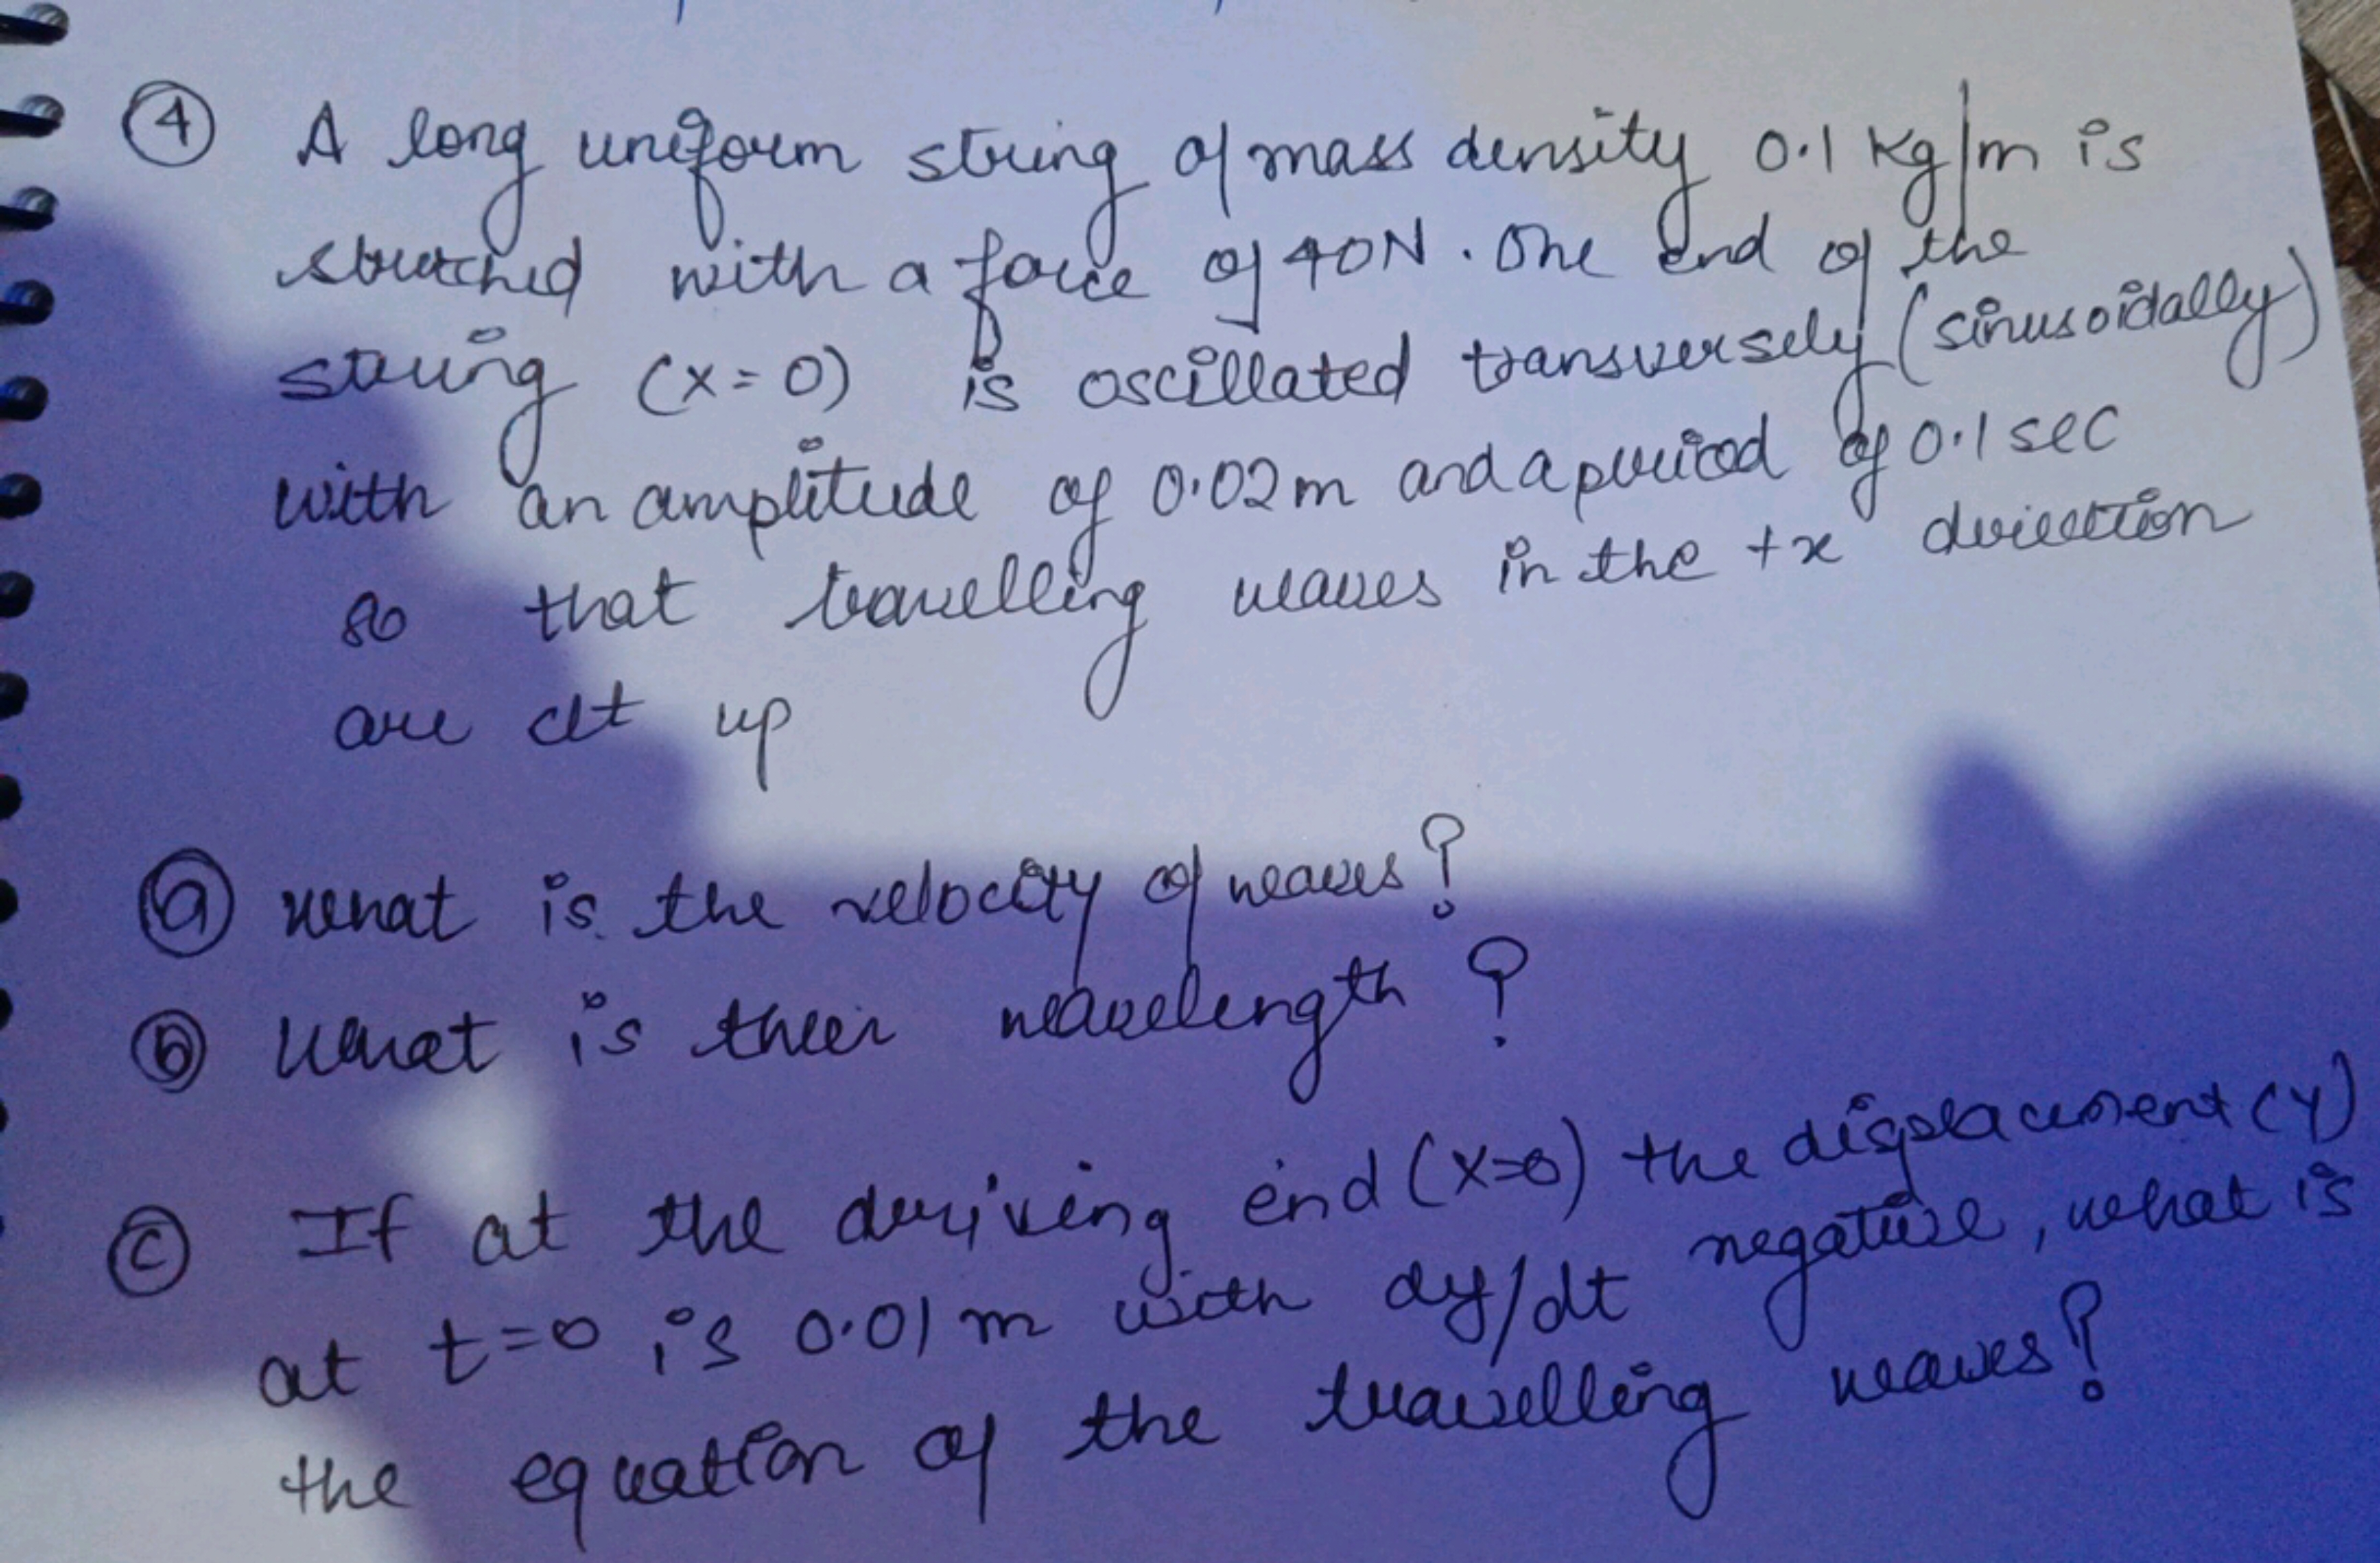 ④ A long uniform string of mass density 0.1 kg/m is
stretched with a force of 40N. One end of the
string (x=0) is oscillated transversely (sinusoidally)
with an amplitude of 0.02m and a period of 0.1 sec
so that travelling waves in the +x direction
are set up
ⓐ What is the velocity of waves?
ⓑ What is their wavelength?
ⓒ If at the driving end (x=0) the displacement (y)
at t=0 is 0.01 m with dy/dt negative, what is
the equation of the travelling waves?